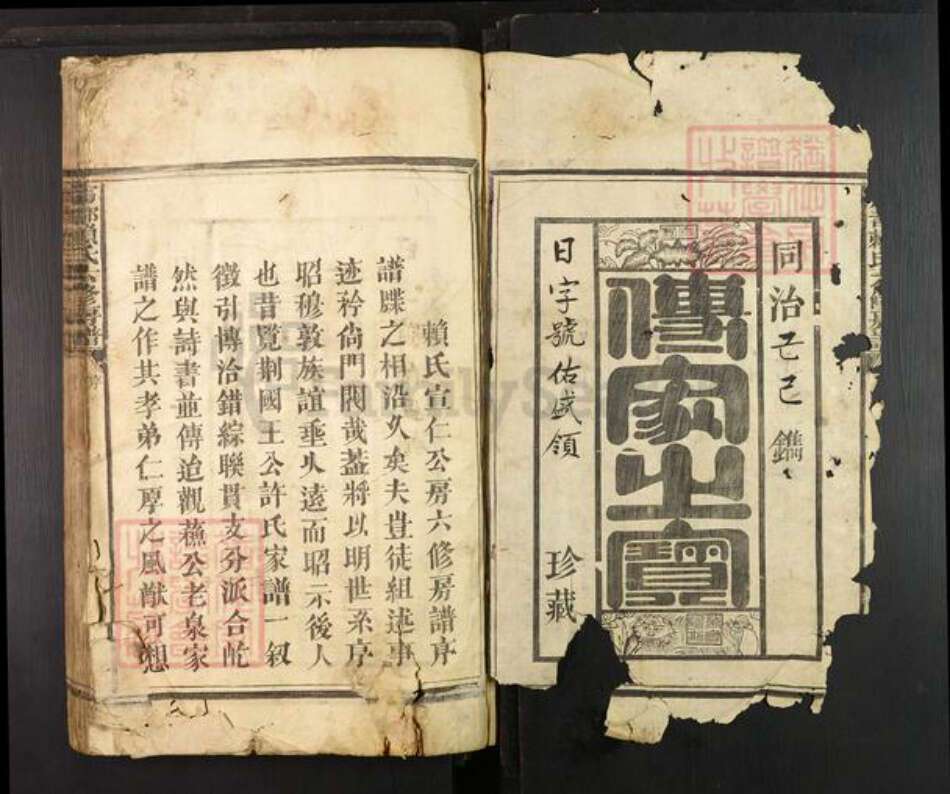 同治己巳鐫
傳家之寶
日字號佑盛領 珍藏
賴氏宣仁公房六修房譜序
譜牒之相沿久矣夫豈徒組述事
迹矜尙門閥哉葢將以明世系序
昭穆敦族誼垂久遠而昭示後人
也昔覽荆國王公許氏家譜一叙
徵引博洽錯綜聯貫支分派合屹
然與詩書並傳迨觀蘓公老泉家
譜之作其孝弟仁厚之風猷可想
賴氏六修房譜